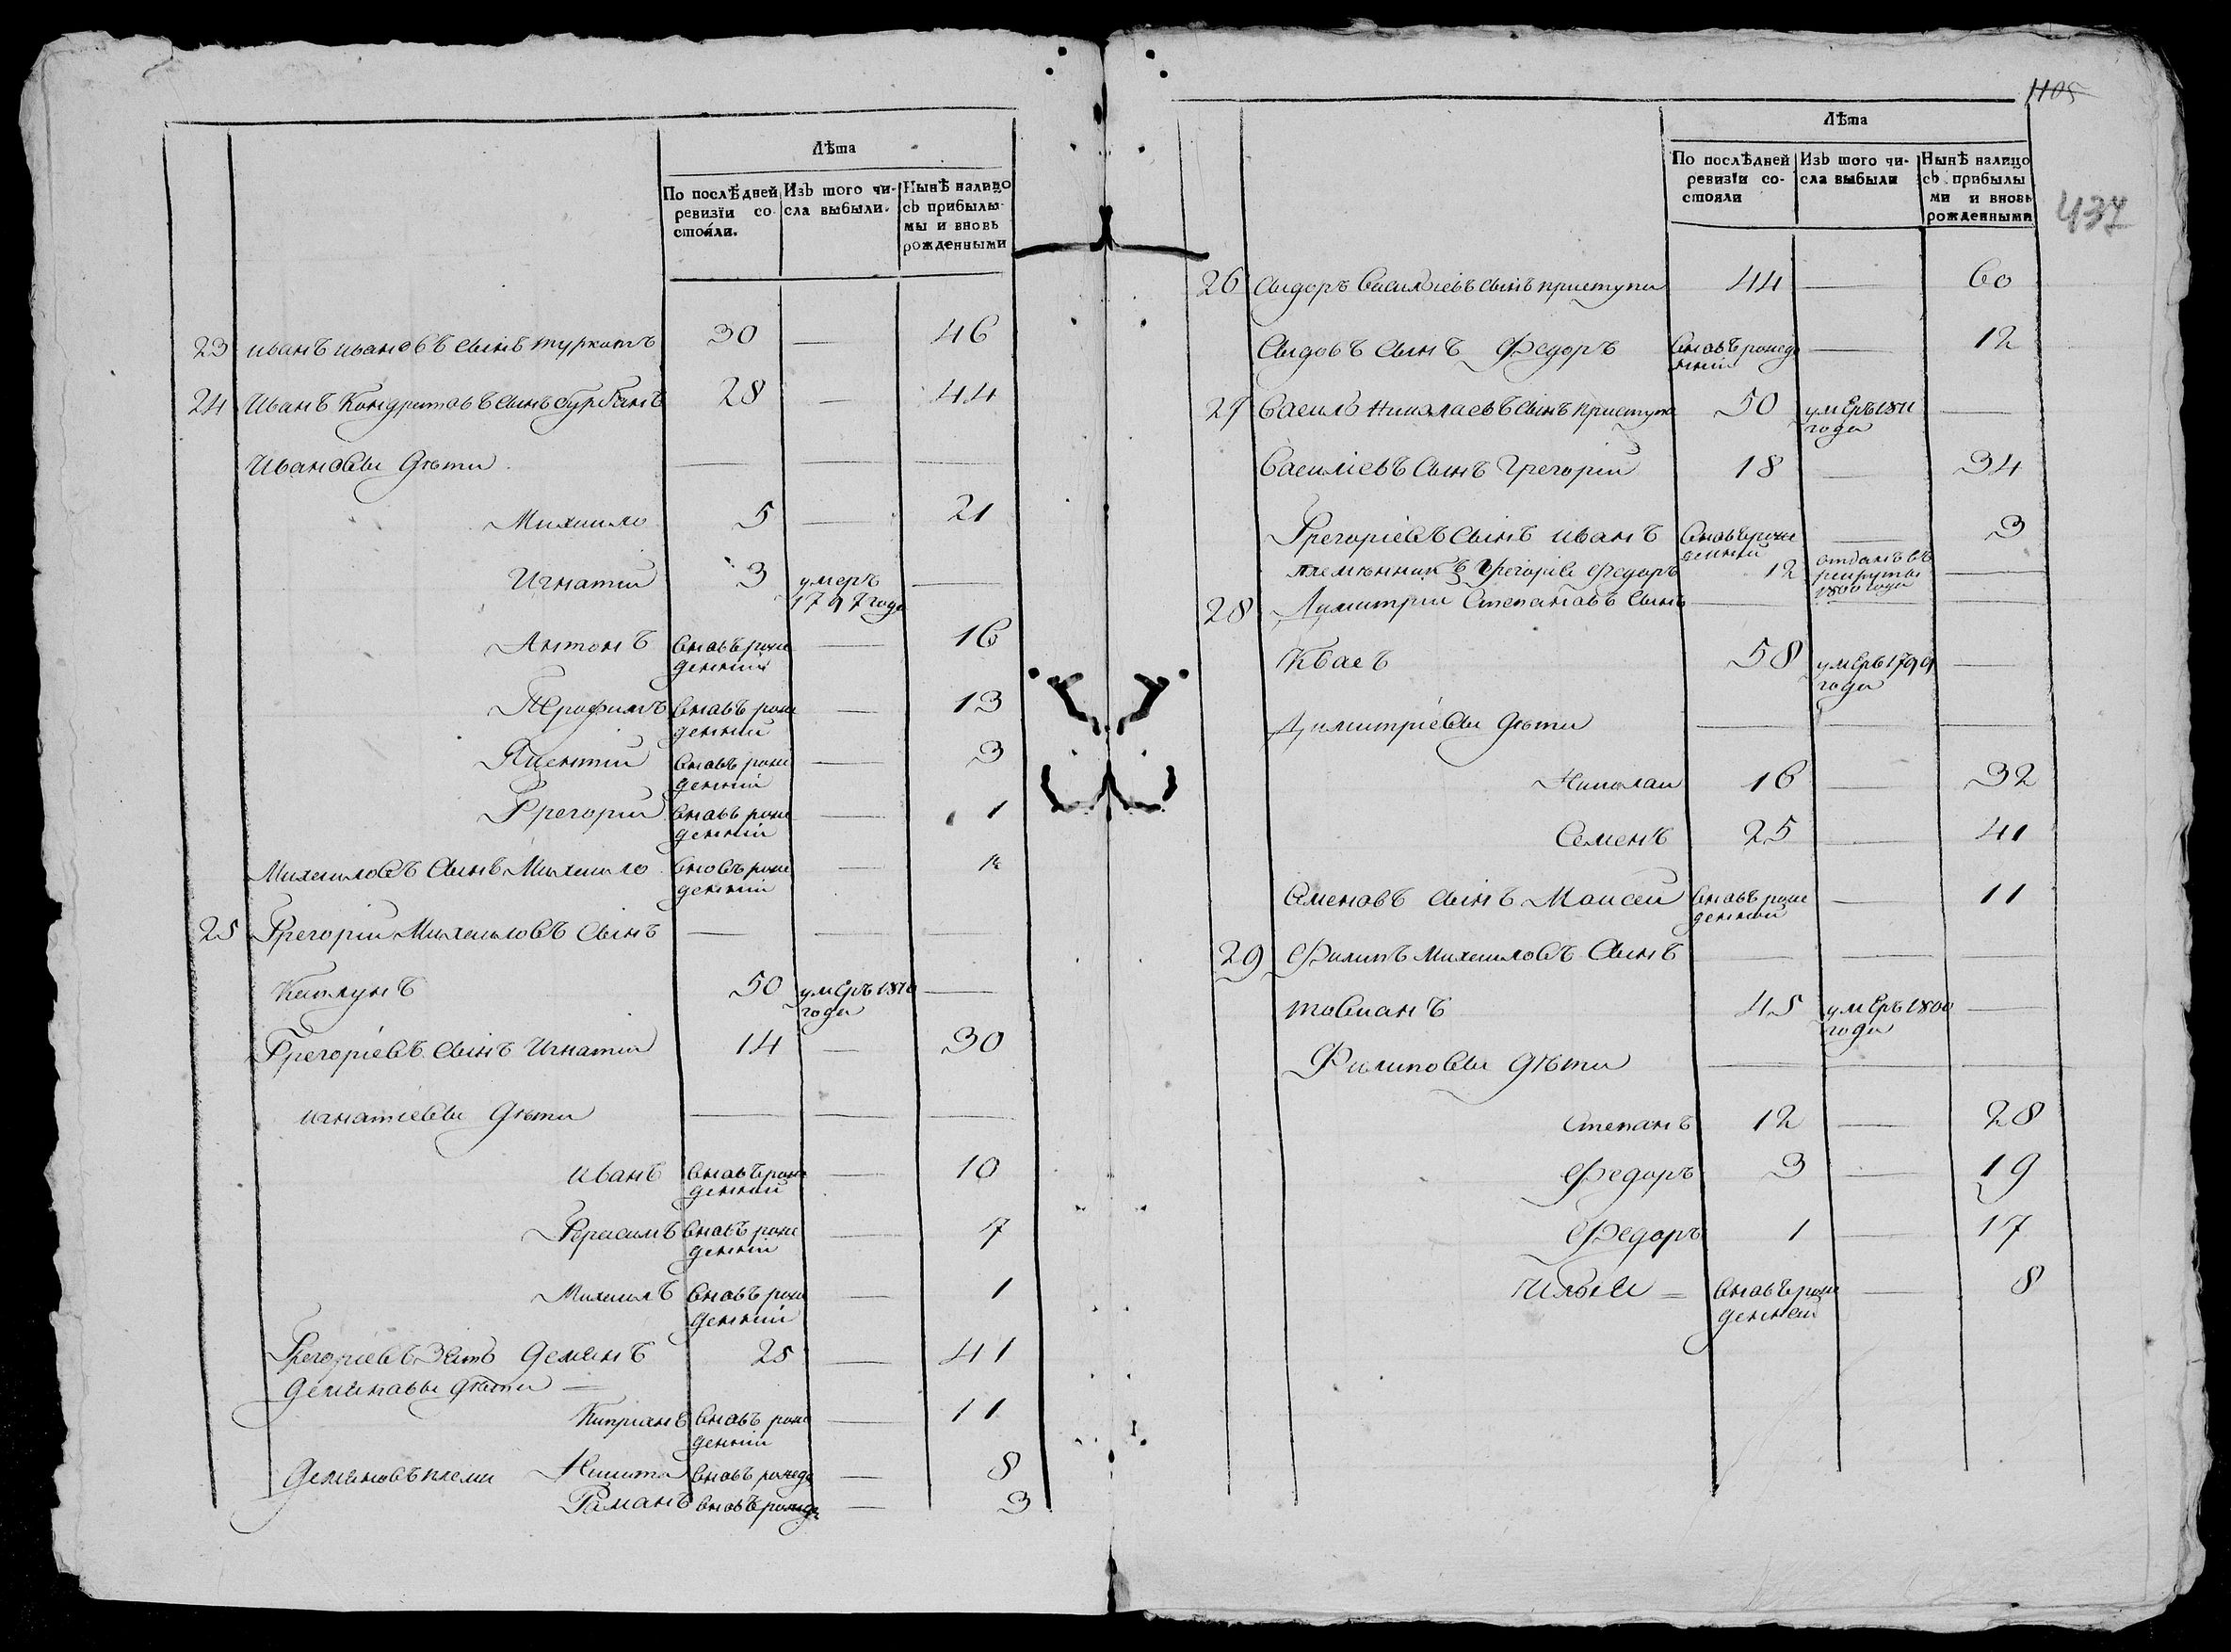 Лѣта
По послѣдней ревизїи состояли.
Изъ того числа выбыли.
Нынѣ налицо съ прибылымы и вновь рожденными
23 иванъ ивановъ сынъ туркотъ 30 — 46
24 Иванъ Кондратовъ сынъ бурбанъ 28 — 44
Ивановы дѣти — — —
Михаило 5 — 21
Игнатій 3 умеръ — 
1797 года
Антонъ вновь рож — 16
денній
Трофимъ вновь рож — 13
денній
вновь рож — 3
денній
Григорій вновь рож — 1
денній
Михаиловъ сынъ Михаило вновь рож —
денній
25 Григорій Михаиловъ сынъ — — —
Каплунъ 50 умеръ 1810 —
года
Григоріевъ сынъ Игнатій 14 — 30
игнатіевы дѣти — — —
иванъ вновь рож — 10
денній
Герасимъ вновь рож — 7
денній
Михаилъ вновь рож — 1
денній
Григоріевъ зять деменъ 25 — 41
деменовы дѣти —
Кипріанъ вновь рож — 11
денній
деменовъ племи Никита вновь рожде — 8
Раманъ вновь рожде — 3
1105
437
Лѣта
По послѣдней ревизїи состояли
Изъ того числа выбыли
Нынѣ налицо съ прибылыми и вновь рожденными
26 Сыдоръ Василіевъ сынъ приступа 44 — 60
Сыдовъ сынъ Федоръ вновь рожде — 12
нній
27 Василь Николаевъ сынъ приступа 50 умеръ 1811 —
года
Василіевъ сынъ Григорій 18 — 34
Григоріевъ сынъ иванъ вновь рож — 3
денній
племянникъ Григоріе Федоръ 12 отданъ въ —
рекруты
1800 года
28 Димитрій Степановъ сынъ — — —
Квасъ 58 умеръ 1799 —
года
Димитріевы дѣти — — —
Николай 16 — 32
Семенъ 25 — 41
Семеновъ сынъ Моисей вновь рож — 11
денній
29 Филипъ Михаиловъ сынъ — — —
товианъ 45 умеръ 1800 —
года
Филиповы дѣти — — —
Степанъ 12 — 28
Федоръ 3 — 19
Федоръ 1 — 17
Илья = вновь рож — 8
денней